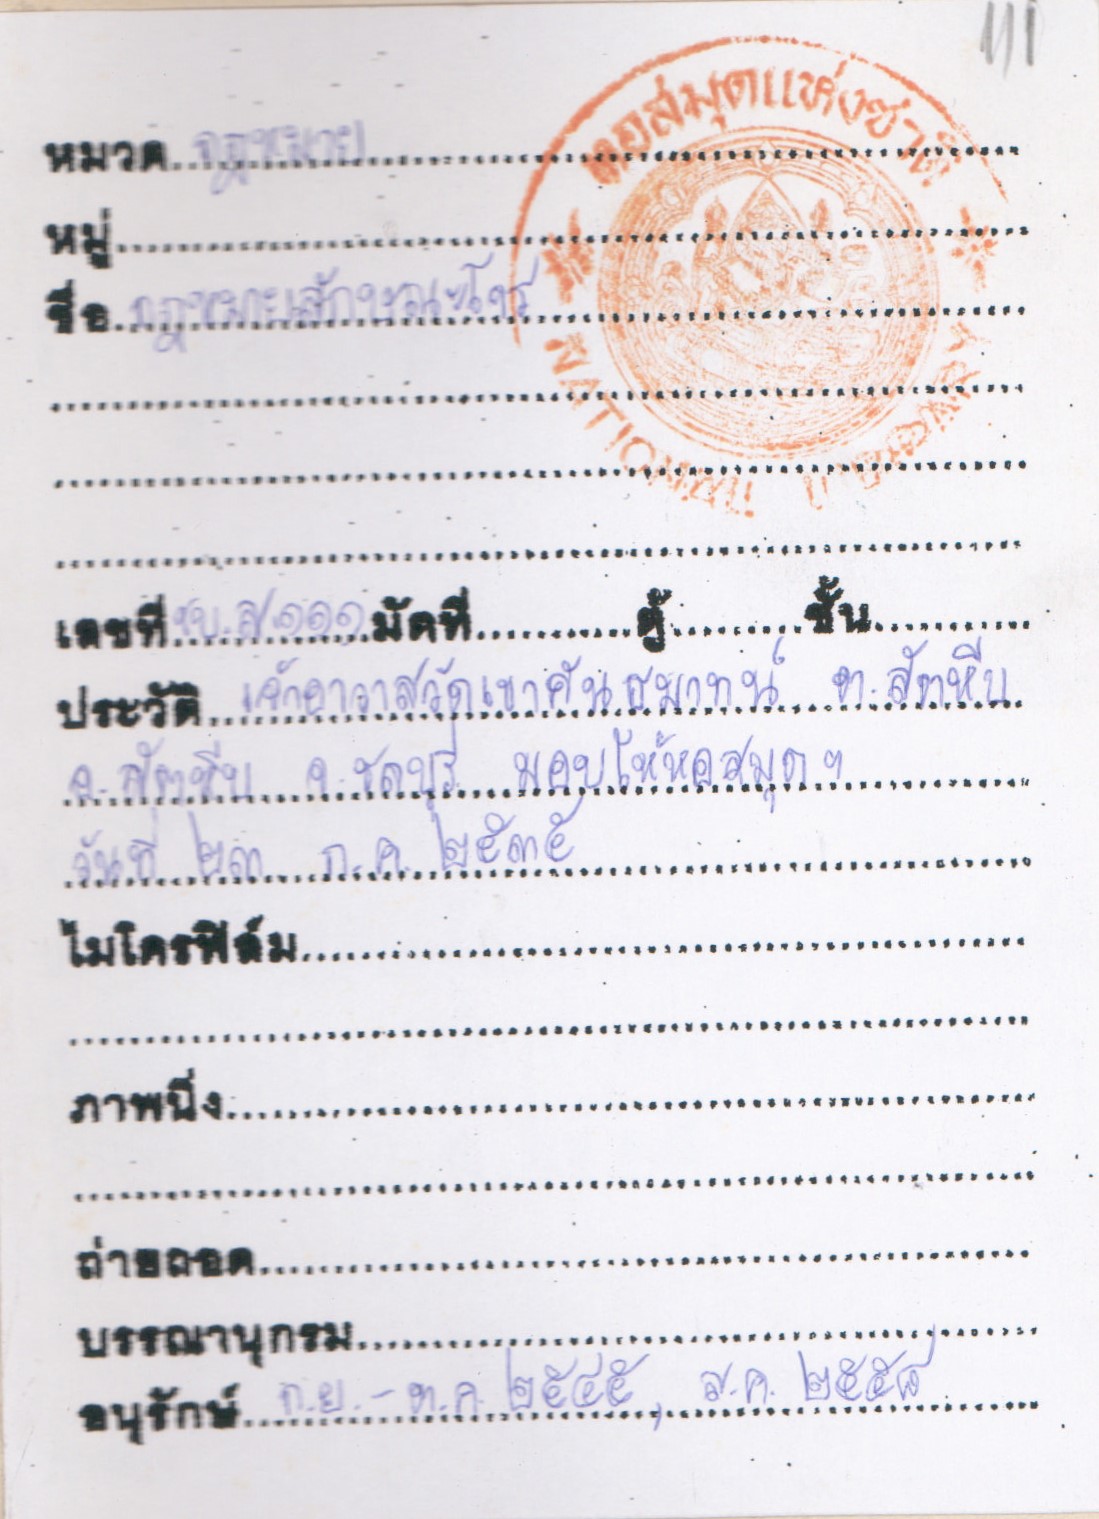 111
หอสมุดแห่งชาติ
NATIONAL LIBRARY
หมวด กฎหมาย
หมู่
ชื่อ กฎหมายลักษณะโจร
เลขที่ ชบ.ส.๑๑๑ มัดที่ ตู้ ชั้น
ประวัติ เจ้าอาวาสวัดเขาคันธมาทน์ ต.สัตหีบ
อ.สัตหีบ จ.ชลบุรี มอบให้หอสมุดฯ
วันที่ ๒๓ ก.ค. ๒๕๓๕
ไมโครฟิล์ม
ภาพนิ่ง
ถ่ายถอด
บรรณานุกรม
อนุรักษ์ ก.ย. - ต.ค. ๒๕๔๕, ส.ค. ๒๕๕๘